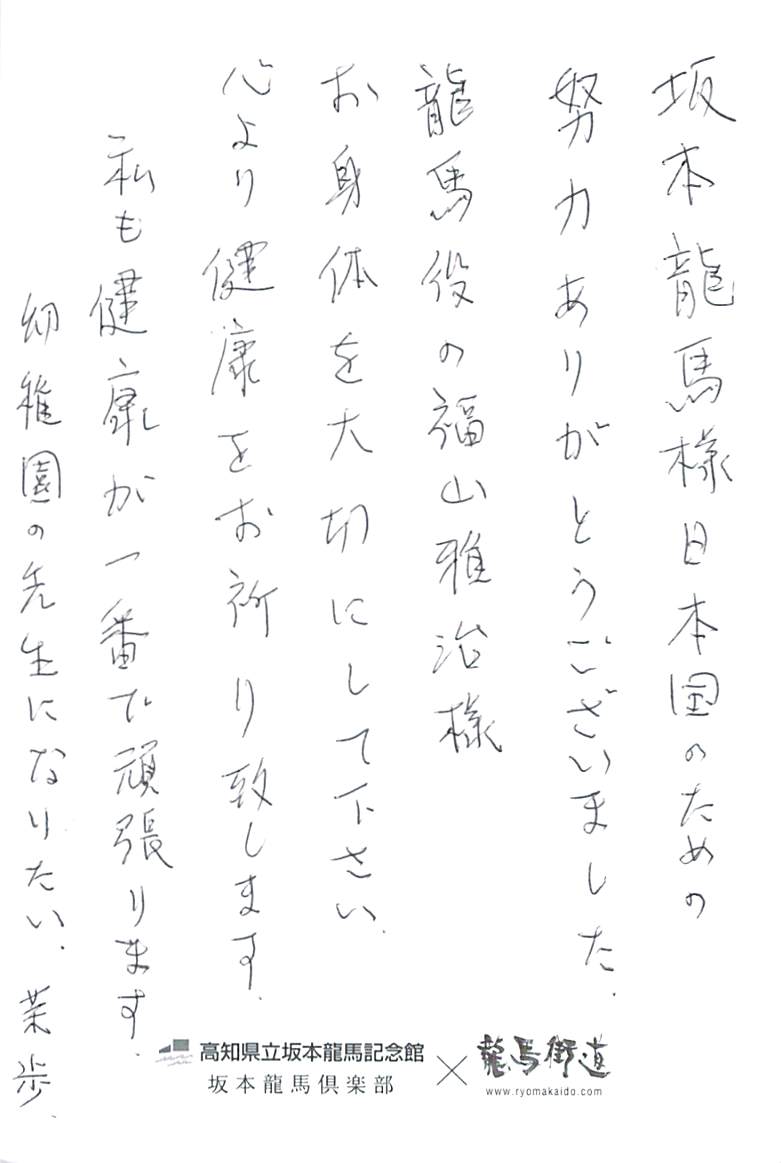 坂本龍馬様日本国のための
努力ありがとうございました.
龍馬役の福山雅治様
お身体を大切にして下さい.
心より健康をお祈り致します.
私も健康が一番で頑張ります.
幼稚園の先生になりたい. 茉歩.
高知県立坂本龍馬記念館
坂本龍馬倶楽部
×
龍馬街道
www.ryomakaido.com